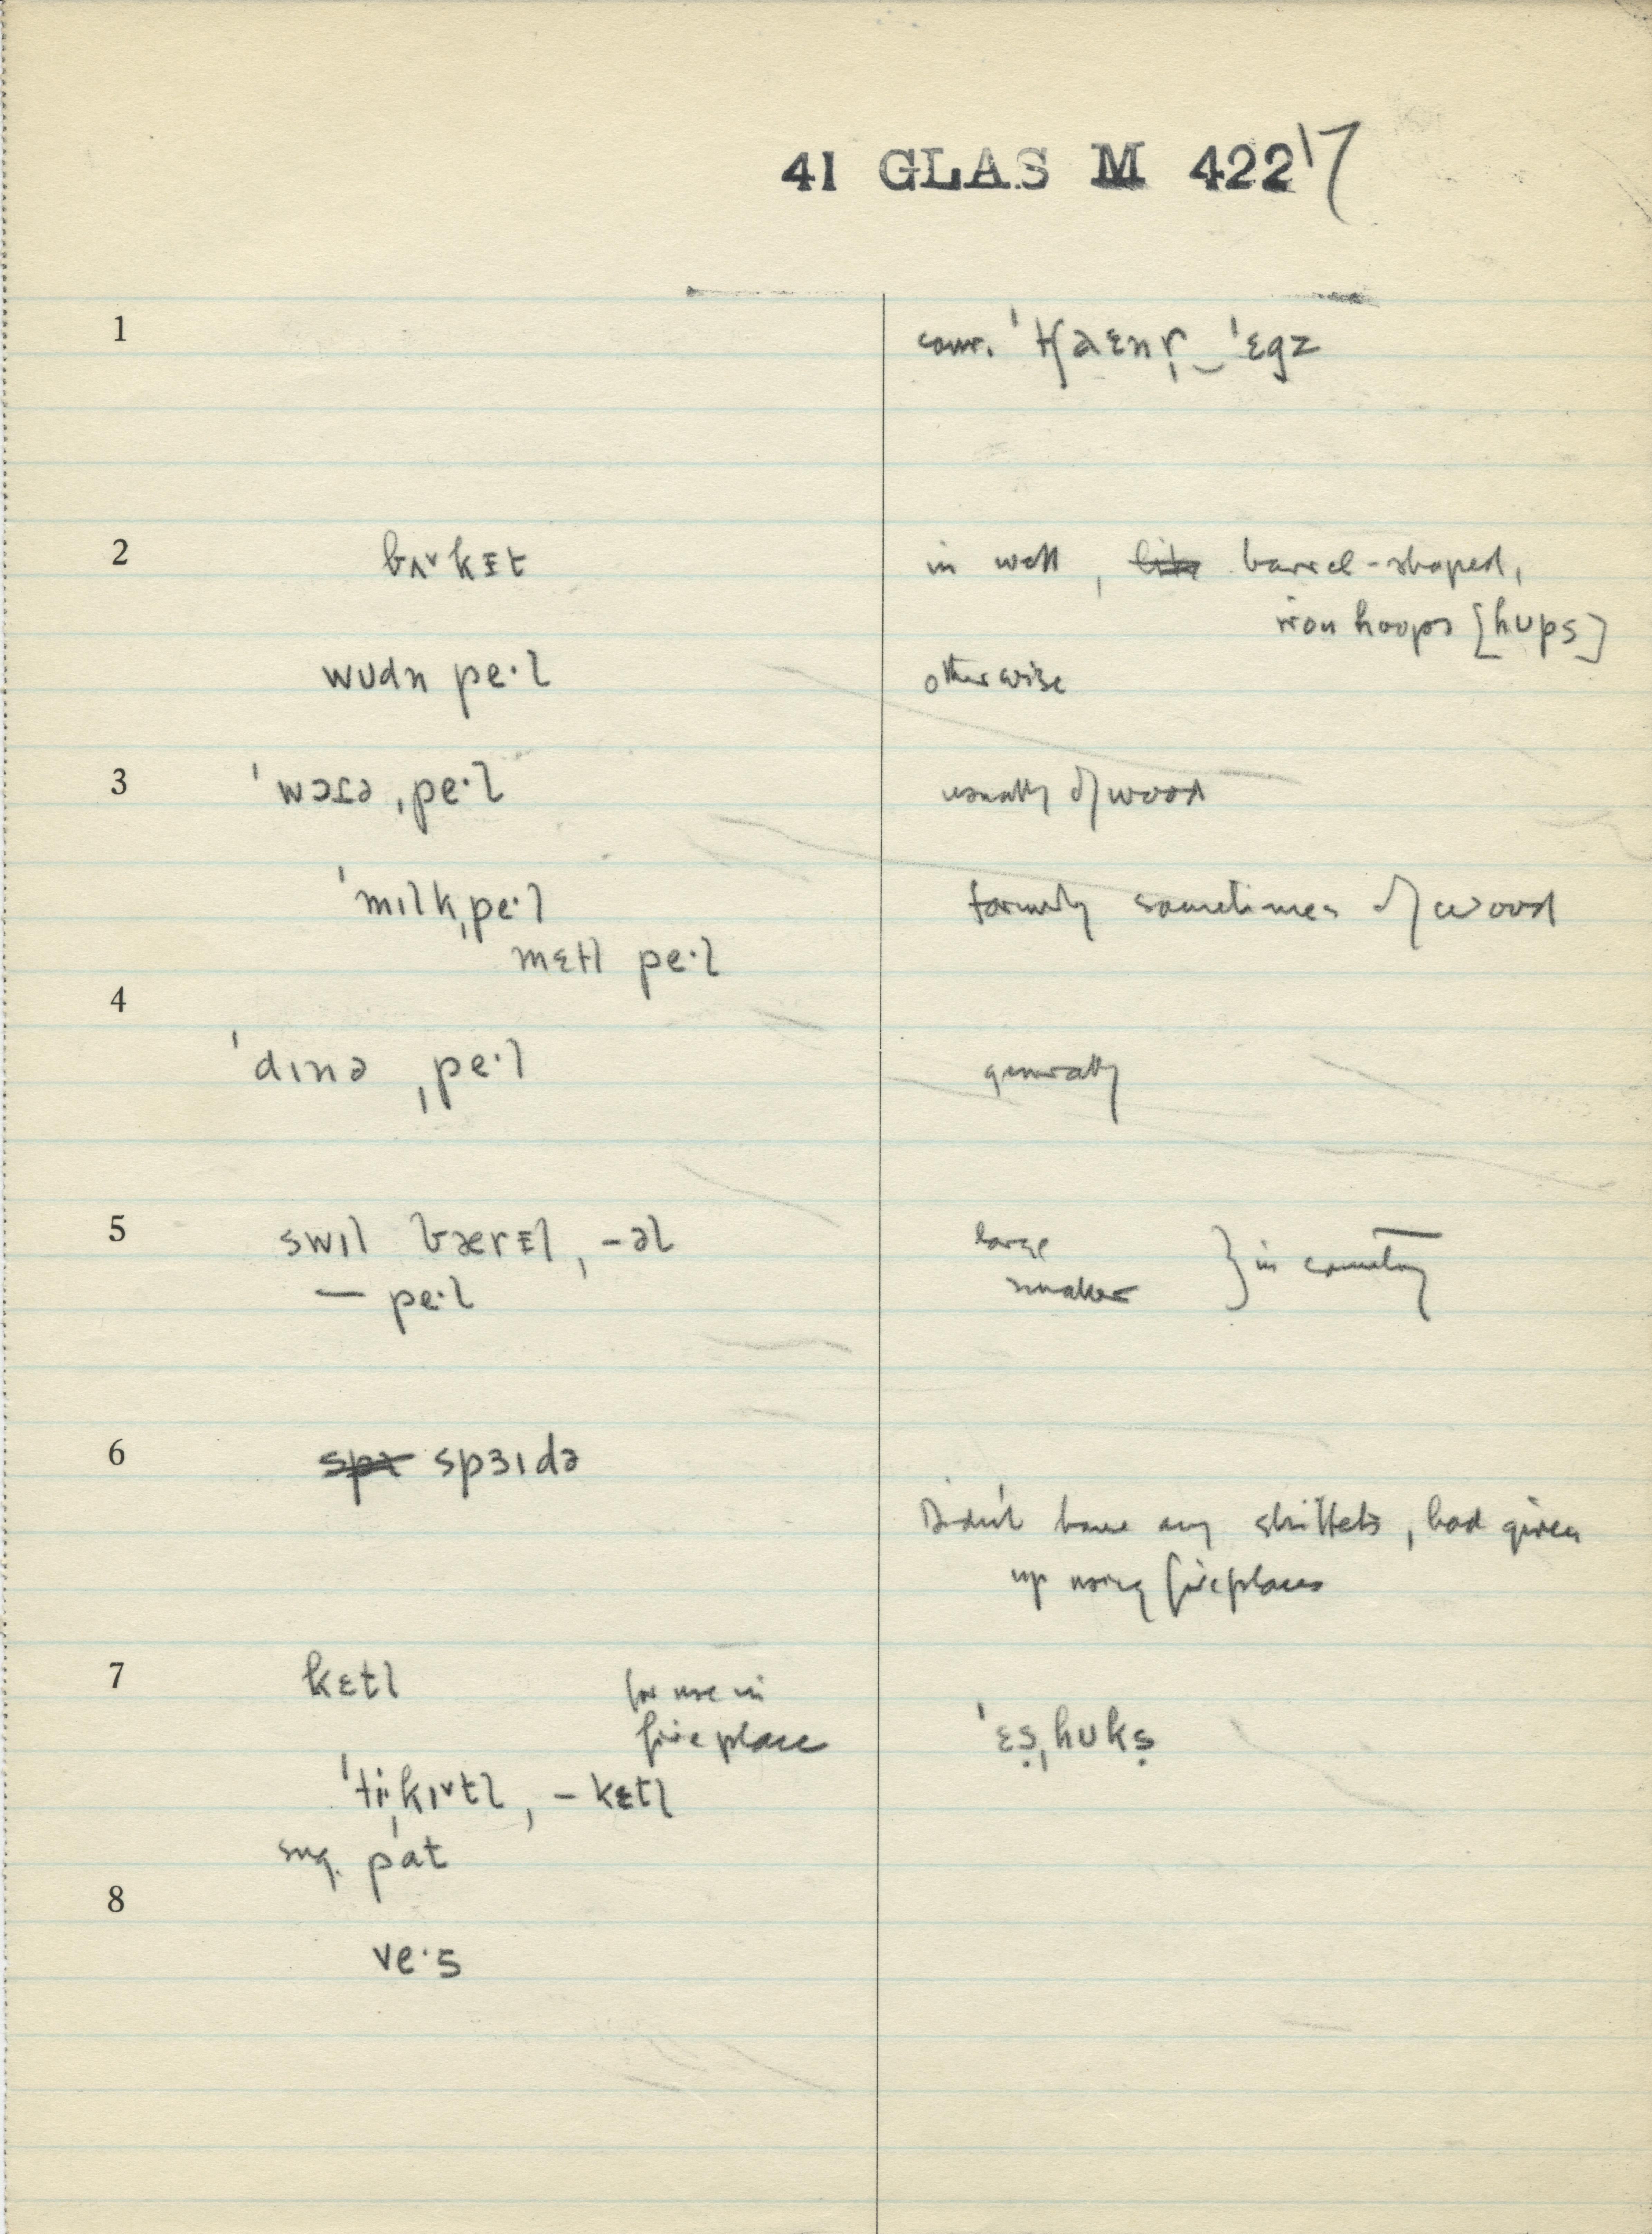 41 GLAS M 422 17
1 conv. ˈtʃaɛnr̩‿ˈɛgz
2 bʌ˅kɪ̵t in well, barrel-shaped,
iron hoops [hʊps]
wʊdn pe·l otherwise
3 ˈwɔɾə ˌpe·l usually of wood
ˈmɪlkˌpe·l formerly sometimes of wood
mɛtl pe·l
4
ˈdɪnə ˌpe·l generally
5 swɪl bærɪ̵l, -əl large } in country
— pe·l smaller
6 spə spɜɪdə
Didn't have any skillets, had given
up using fireplaces
7 kɛtl for use in
fireplace ˈɛṣˌhʊkṣ
ˈtiˌkɪ˅tl, – kɛtl
sug. pat
8
ve·s